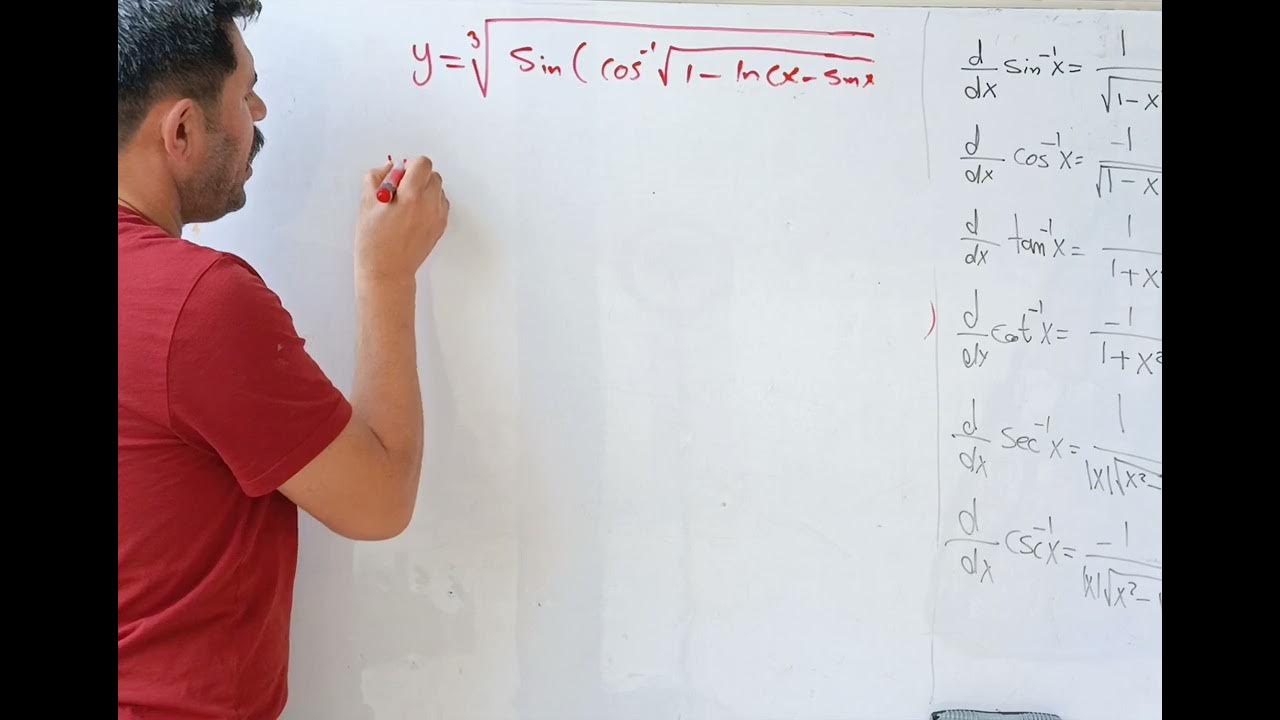 y = ∛ Sin ( cos⁻¹ √ 1 - ln(x - sinx
d/dx sin⁻¹x = 1/√1-x
d/dx cos⁻¹x = -1/√1-x
d/dx tan⁻¹x = 1/1+x²
)
d/dx cot⁻¹x = -1/1+x²
d/dx Sec⁻¹x = 1/|x|√x²-
d/dx CSC⁻¹x = -1/|x|√x²-